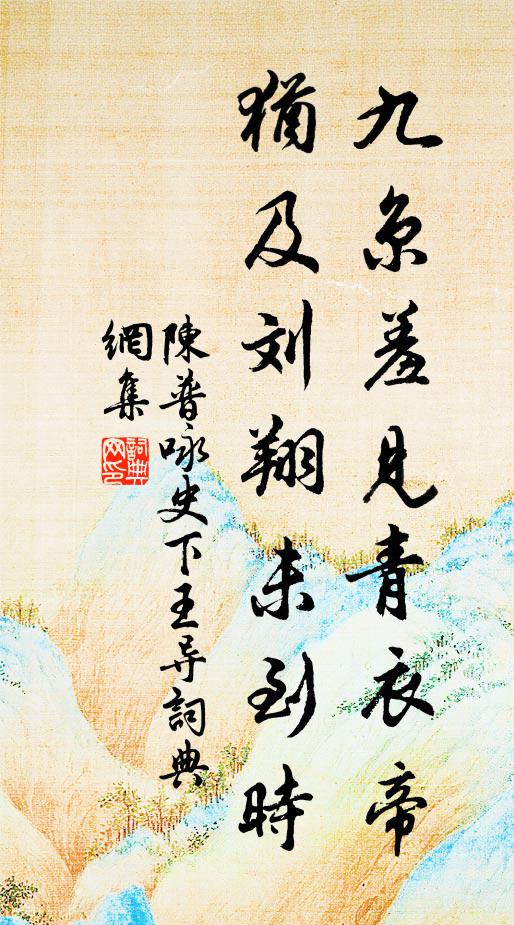 九京羞見青衣帝
猶及刘翔未到時
陳普咏史下王导詞典
網集
詞典
网印